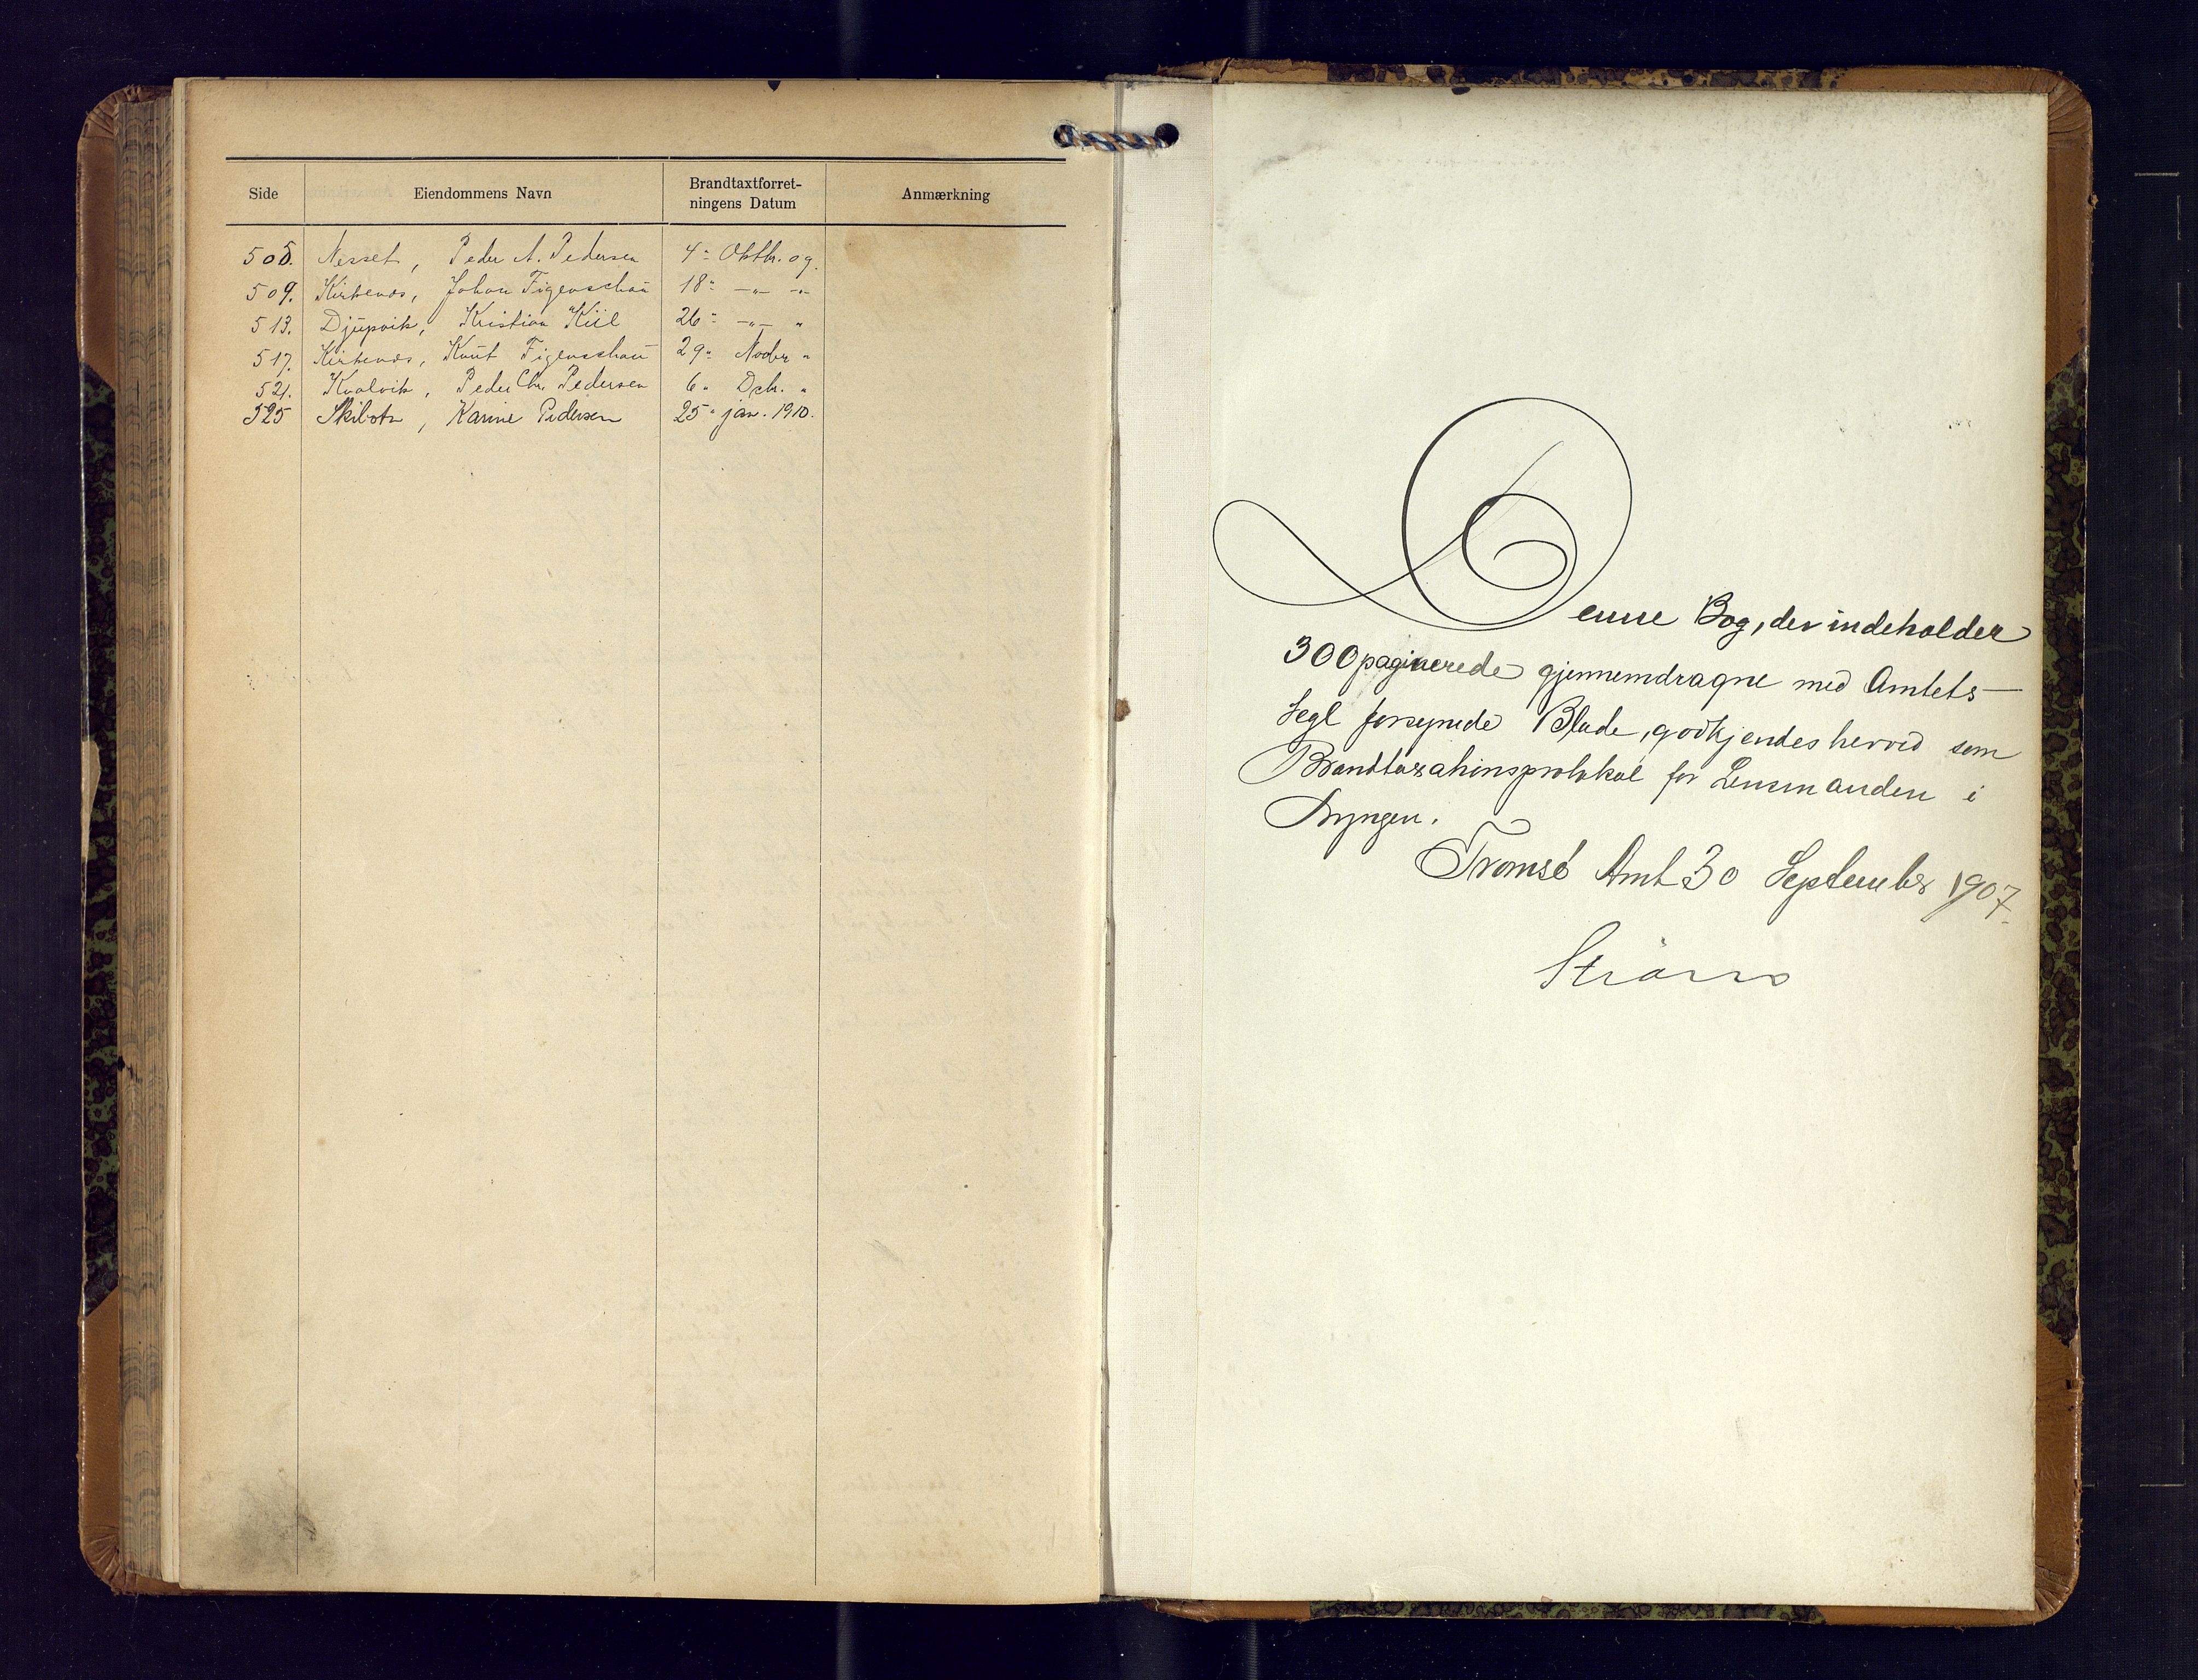 Side Eiendommens Navn Brandtaxtforret-ningens Datum Anmærkning
505. Nesset, Peder A. Pedersen 4" Oktbr. 09.
509. Kirkenes, Johan Figenschau 18" -"- -"-
513. Djupvik, Kristian Kiil 26" -"- "
517. Kirkenes, Knut Figenschau 29" Novbr "
521. Kvalvik, Peder Chr. Pedersen 6" Dcbr. "
525 Skibotn, Karine Pedersen 25" jan. 1910.
Denne Bog, der indeholder
300 paginerede gjennemdragne med Amtets-
Segl forsynede Blade, godkjendes herved som
Brandtaxationsprotokol for Lensmanden i
Lyngen.
Tromsö Amt 30 September 1907.